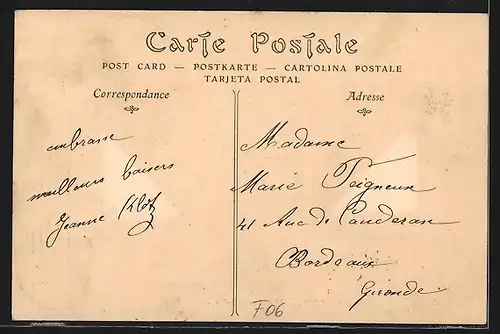 Carte Postale
POST CARD — POSTKARTE — CARTOLINA POSTALE
TARJETA POSTAL
Correspondance
Adresse
embrasse
meilleurs baisers
Jeanne Klotz
Madame
Marie Peigneux
41 Rue de Cauderan
Bordeaux
Gironde
F06